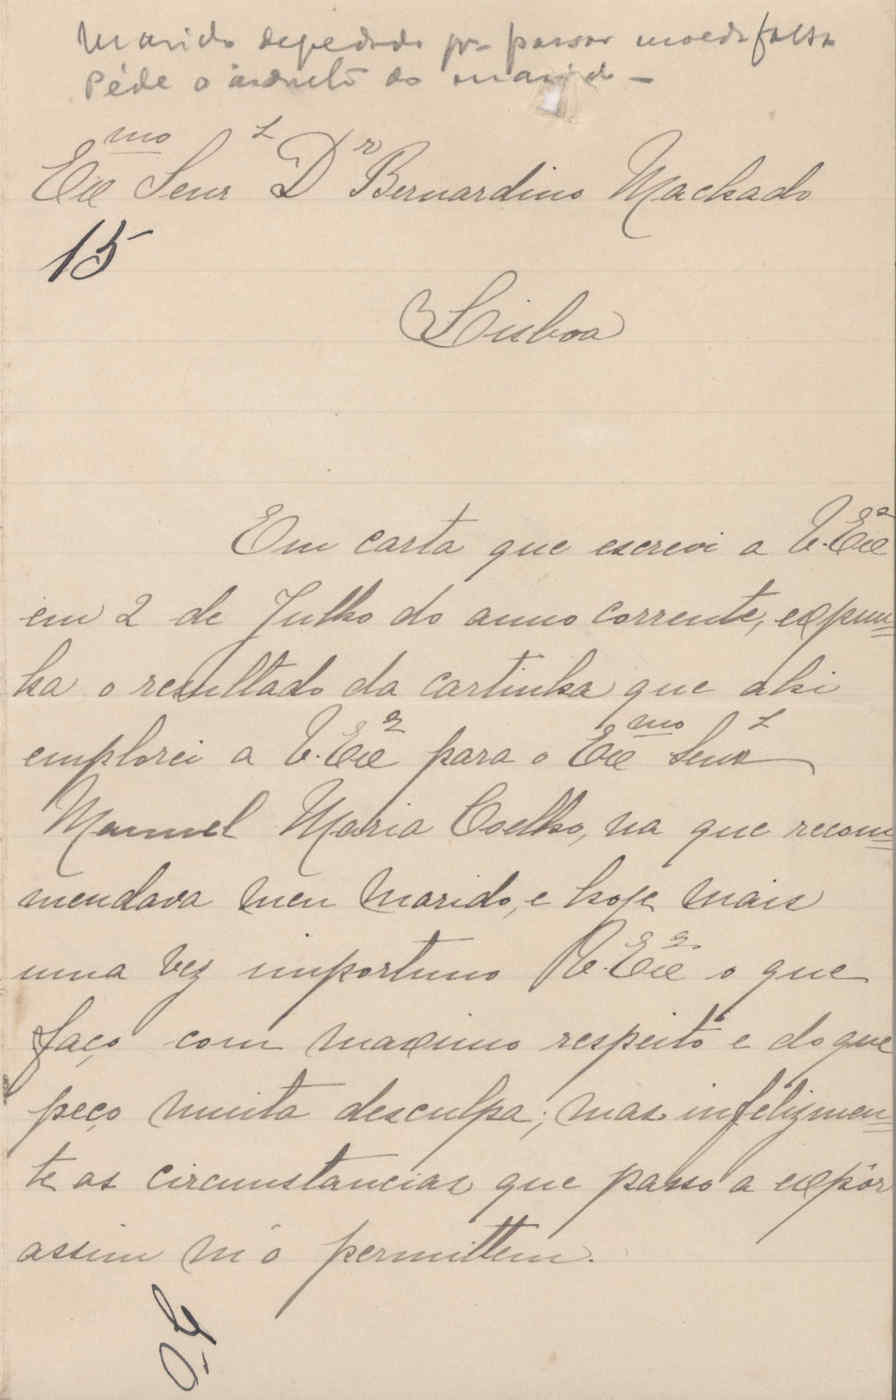 Marido degredado por passar moeda falsa
Péde o indulto do marido —
Exmo Senr Dr Bernardino Machado
15
Lisboa
Em carta que escrevi a V. Exa
em 2 de Julho do anno corrente, expun=
ha o resultado da cartinha que ahi
emplorei a V. Exa para o Exmo Senr
Manuel Maria Coelho, na que recom=
mendava meu marido, e hoje mais
uma vez importuno V. Exa o que
faço com maximo respeito e do que
peço muita desculpa; mas infelizmen=
te as circumstancias que passo a expôr
assim m'o permittem.